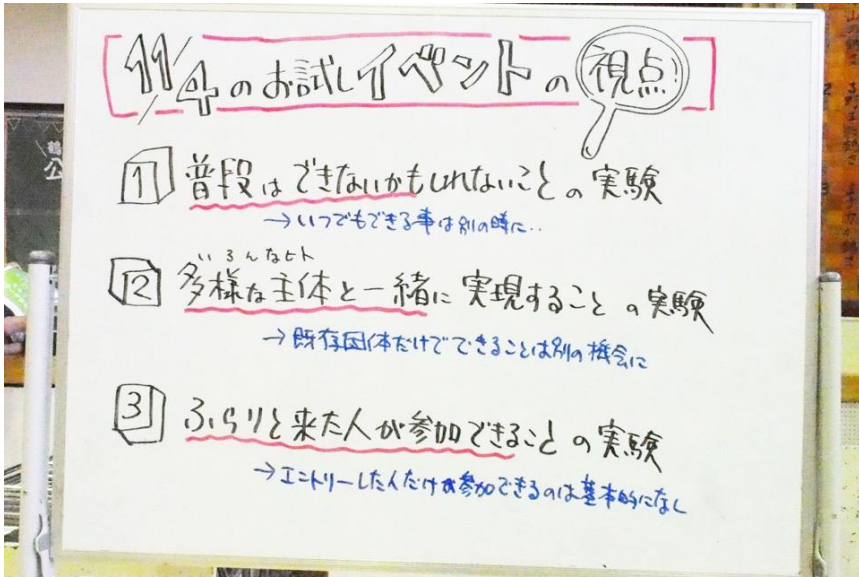 11/4のお試しイベントの視点!
1 普段はできないかもしれないことの実験
→いつでもできる事は別の時に..
いろんなヒト
2 多様な主体と一緒に実現することの実験
→既存団体だけでできることは別の機会に
3 ふらりと来た人が参加できることの実験
→エントリーした人だけが参加できるのは基本的になし